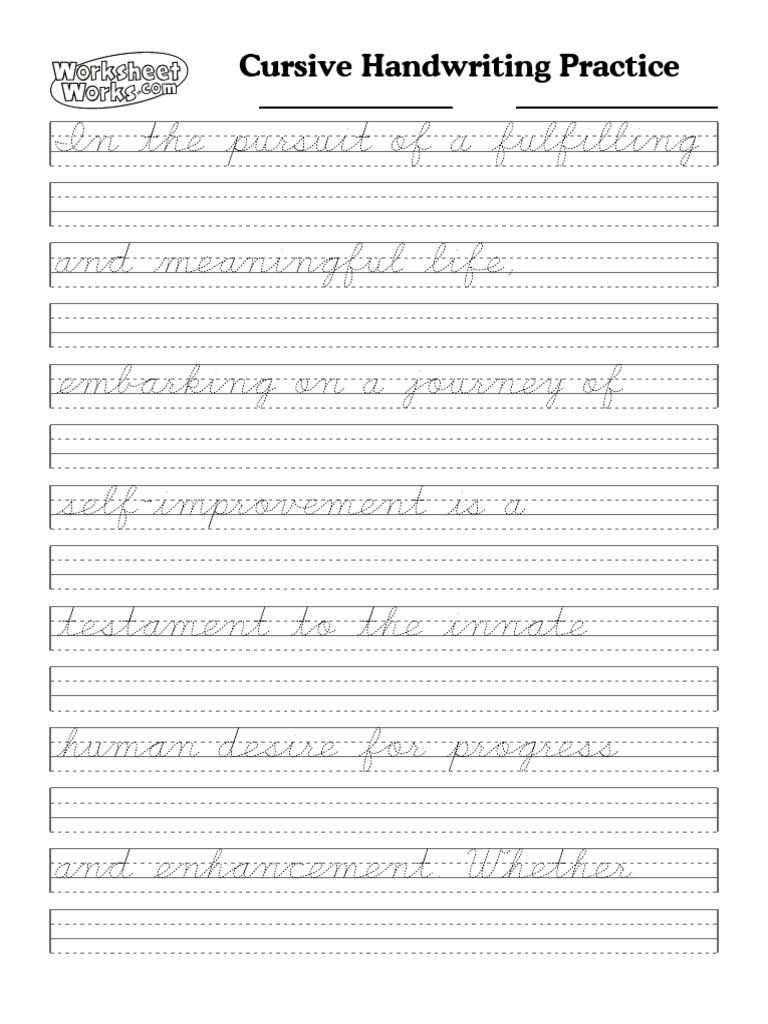 Worksheet
Works.com
Cursive Handwriting Practice
In the pursuit of a fulfilling
and meaningful life,
embarking on a journey of
self-improvement is a
testament to the innate
human desire for progress
and enhancement. Whether